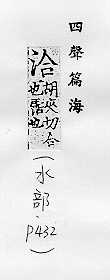 四聲篇海
洽
胡夾切合
也也
(水部, p432)